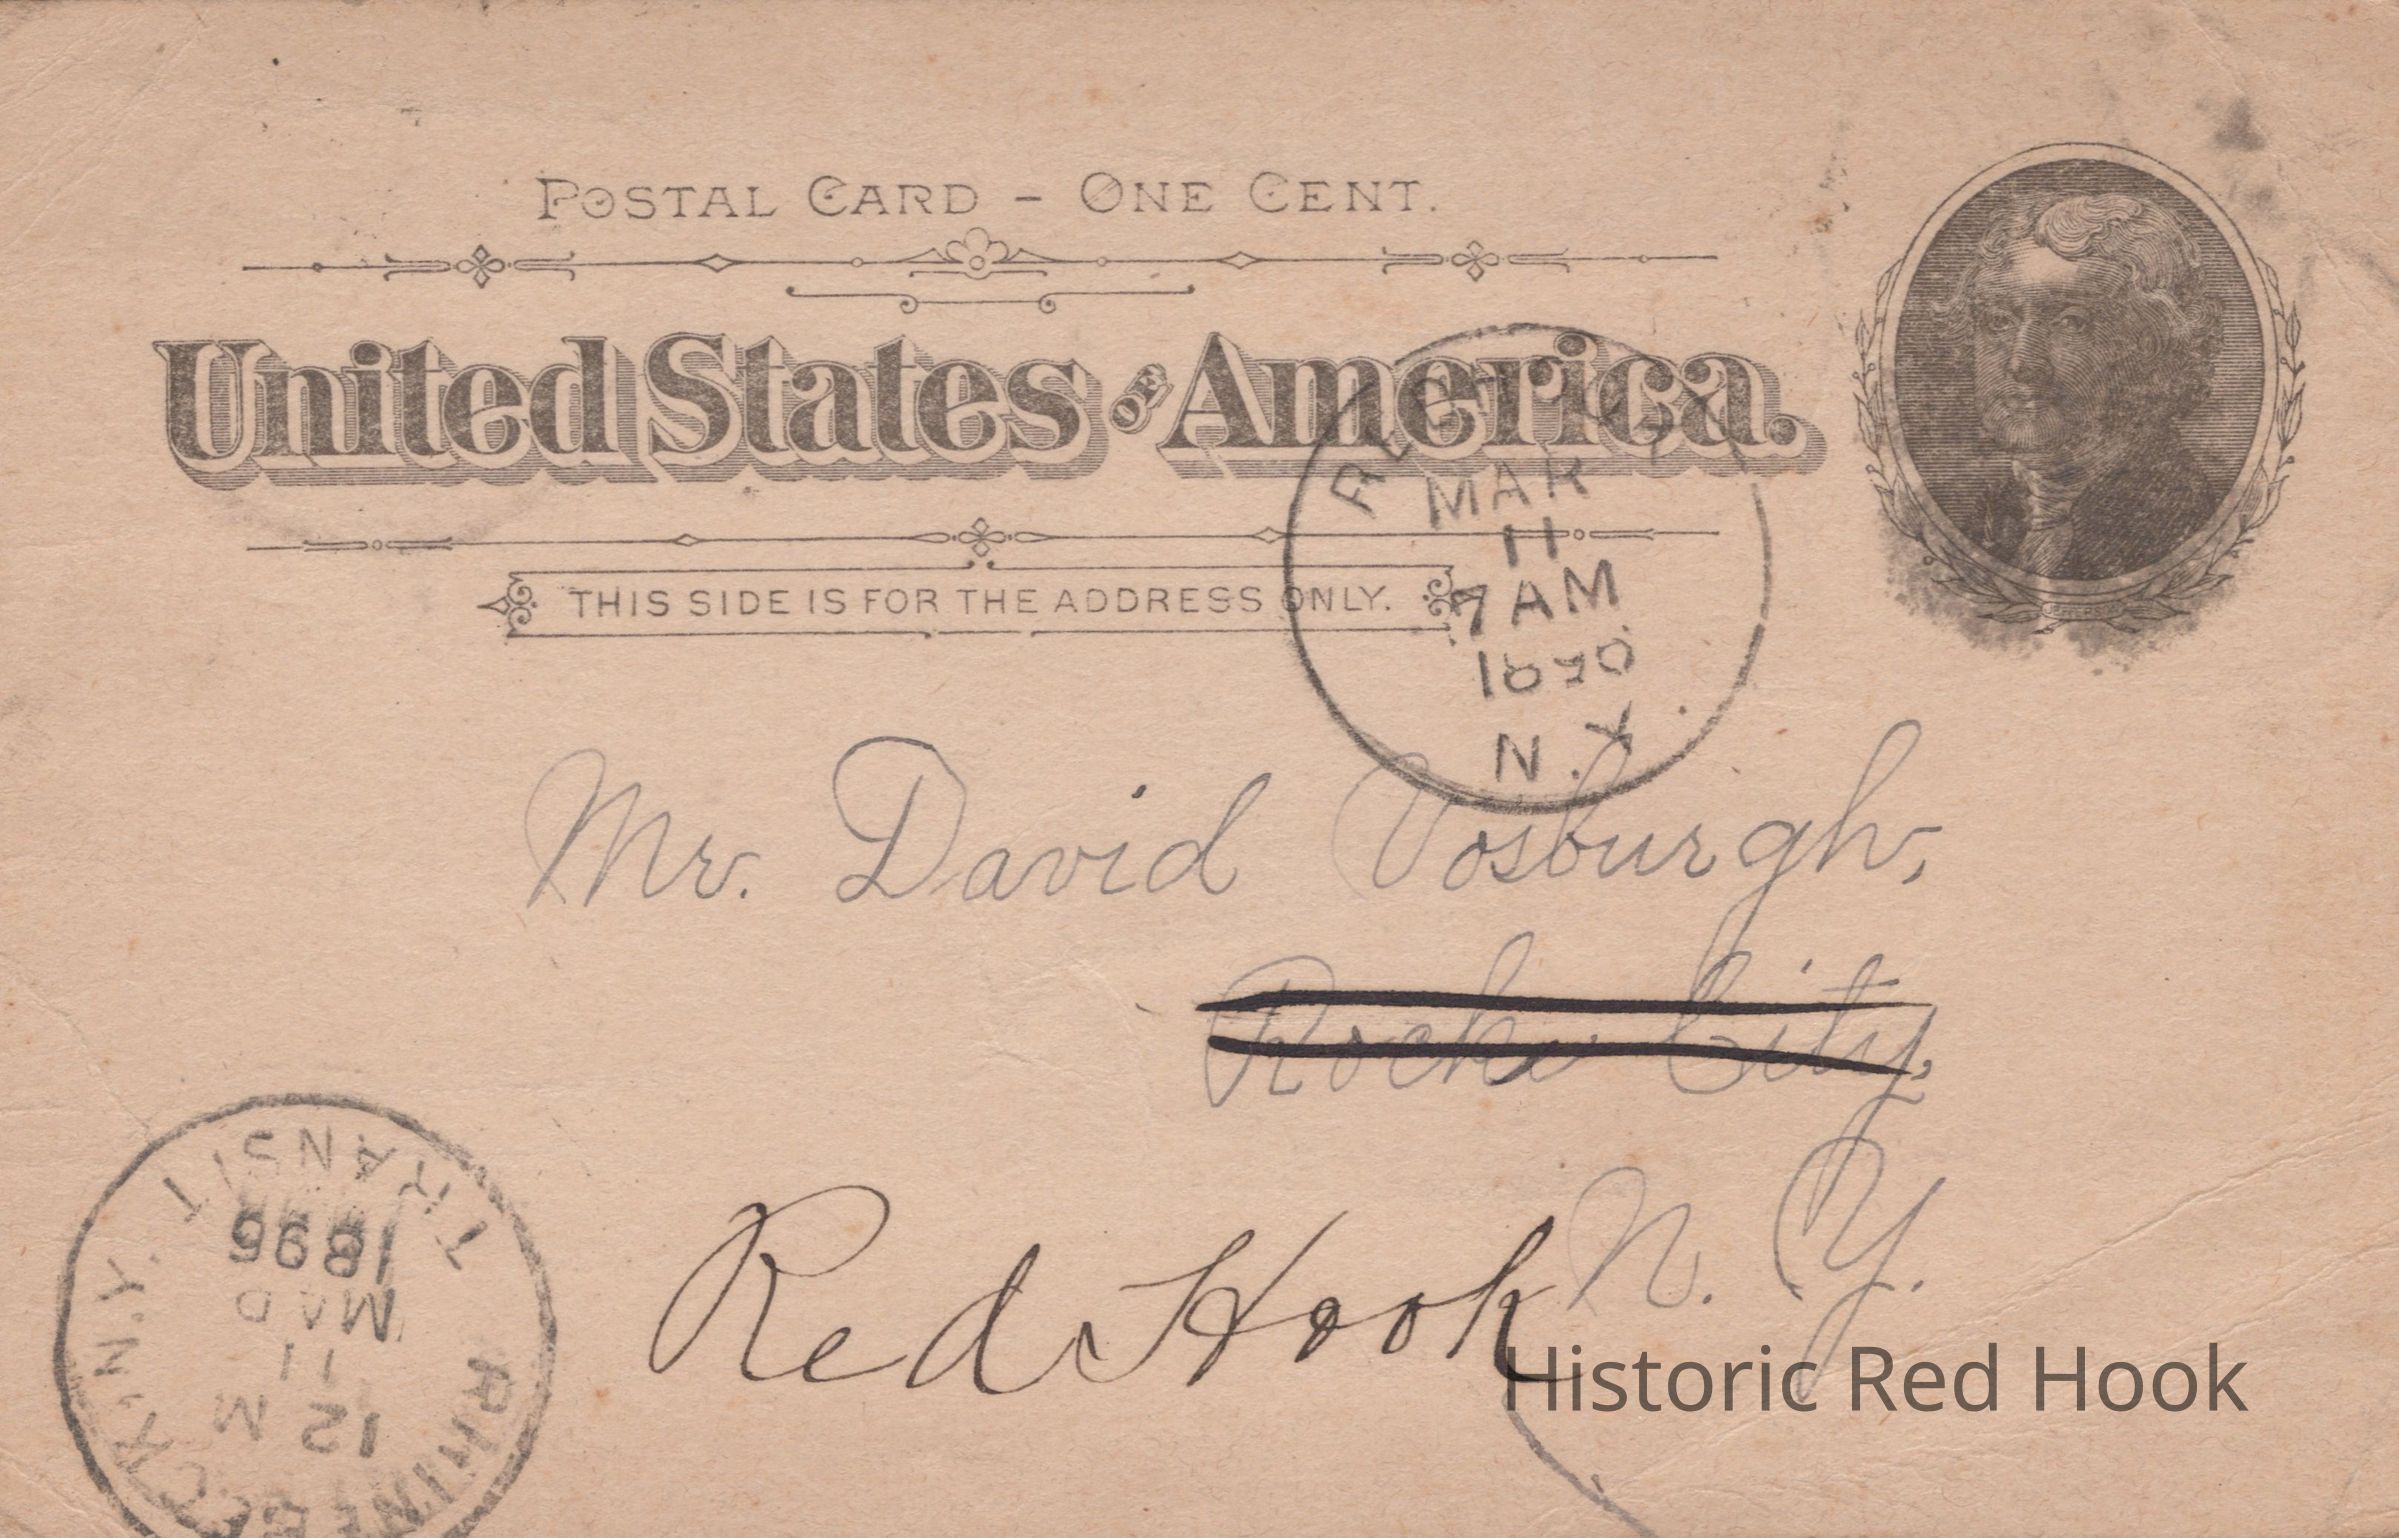 POSTAL CARD - ONE CENT.
United States OF America.
THIS SIDE IS FOR THE ADDRESS ONLY.
MAR
11
7 AM
N.Y.
Mr. David Vosburgh,
Rock City,
N. Y.
Red Hook
Historic Red Hook
TRANSIT
1896
11
12 M
RHINEBECK, N.Y.